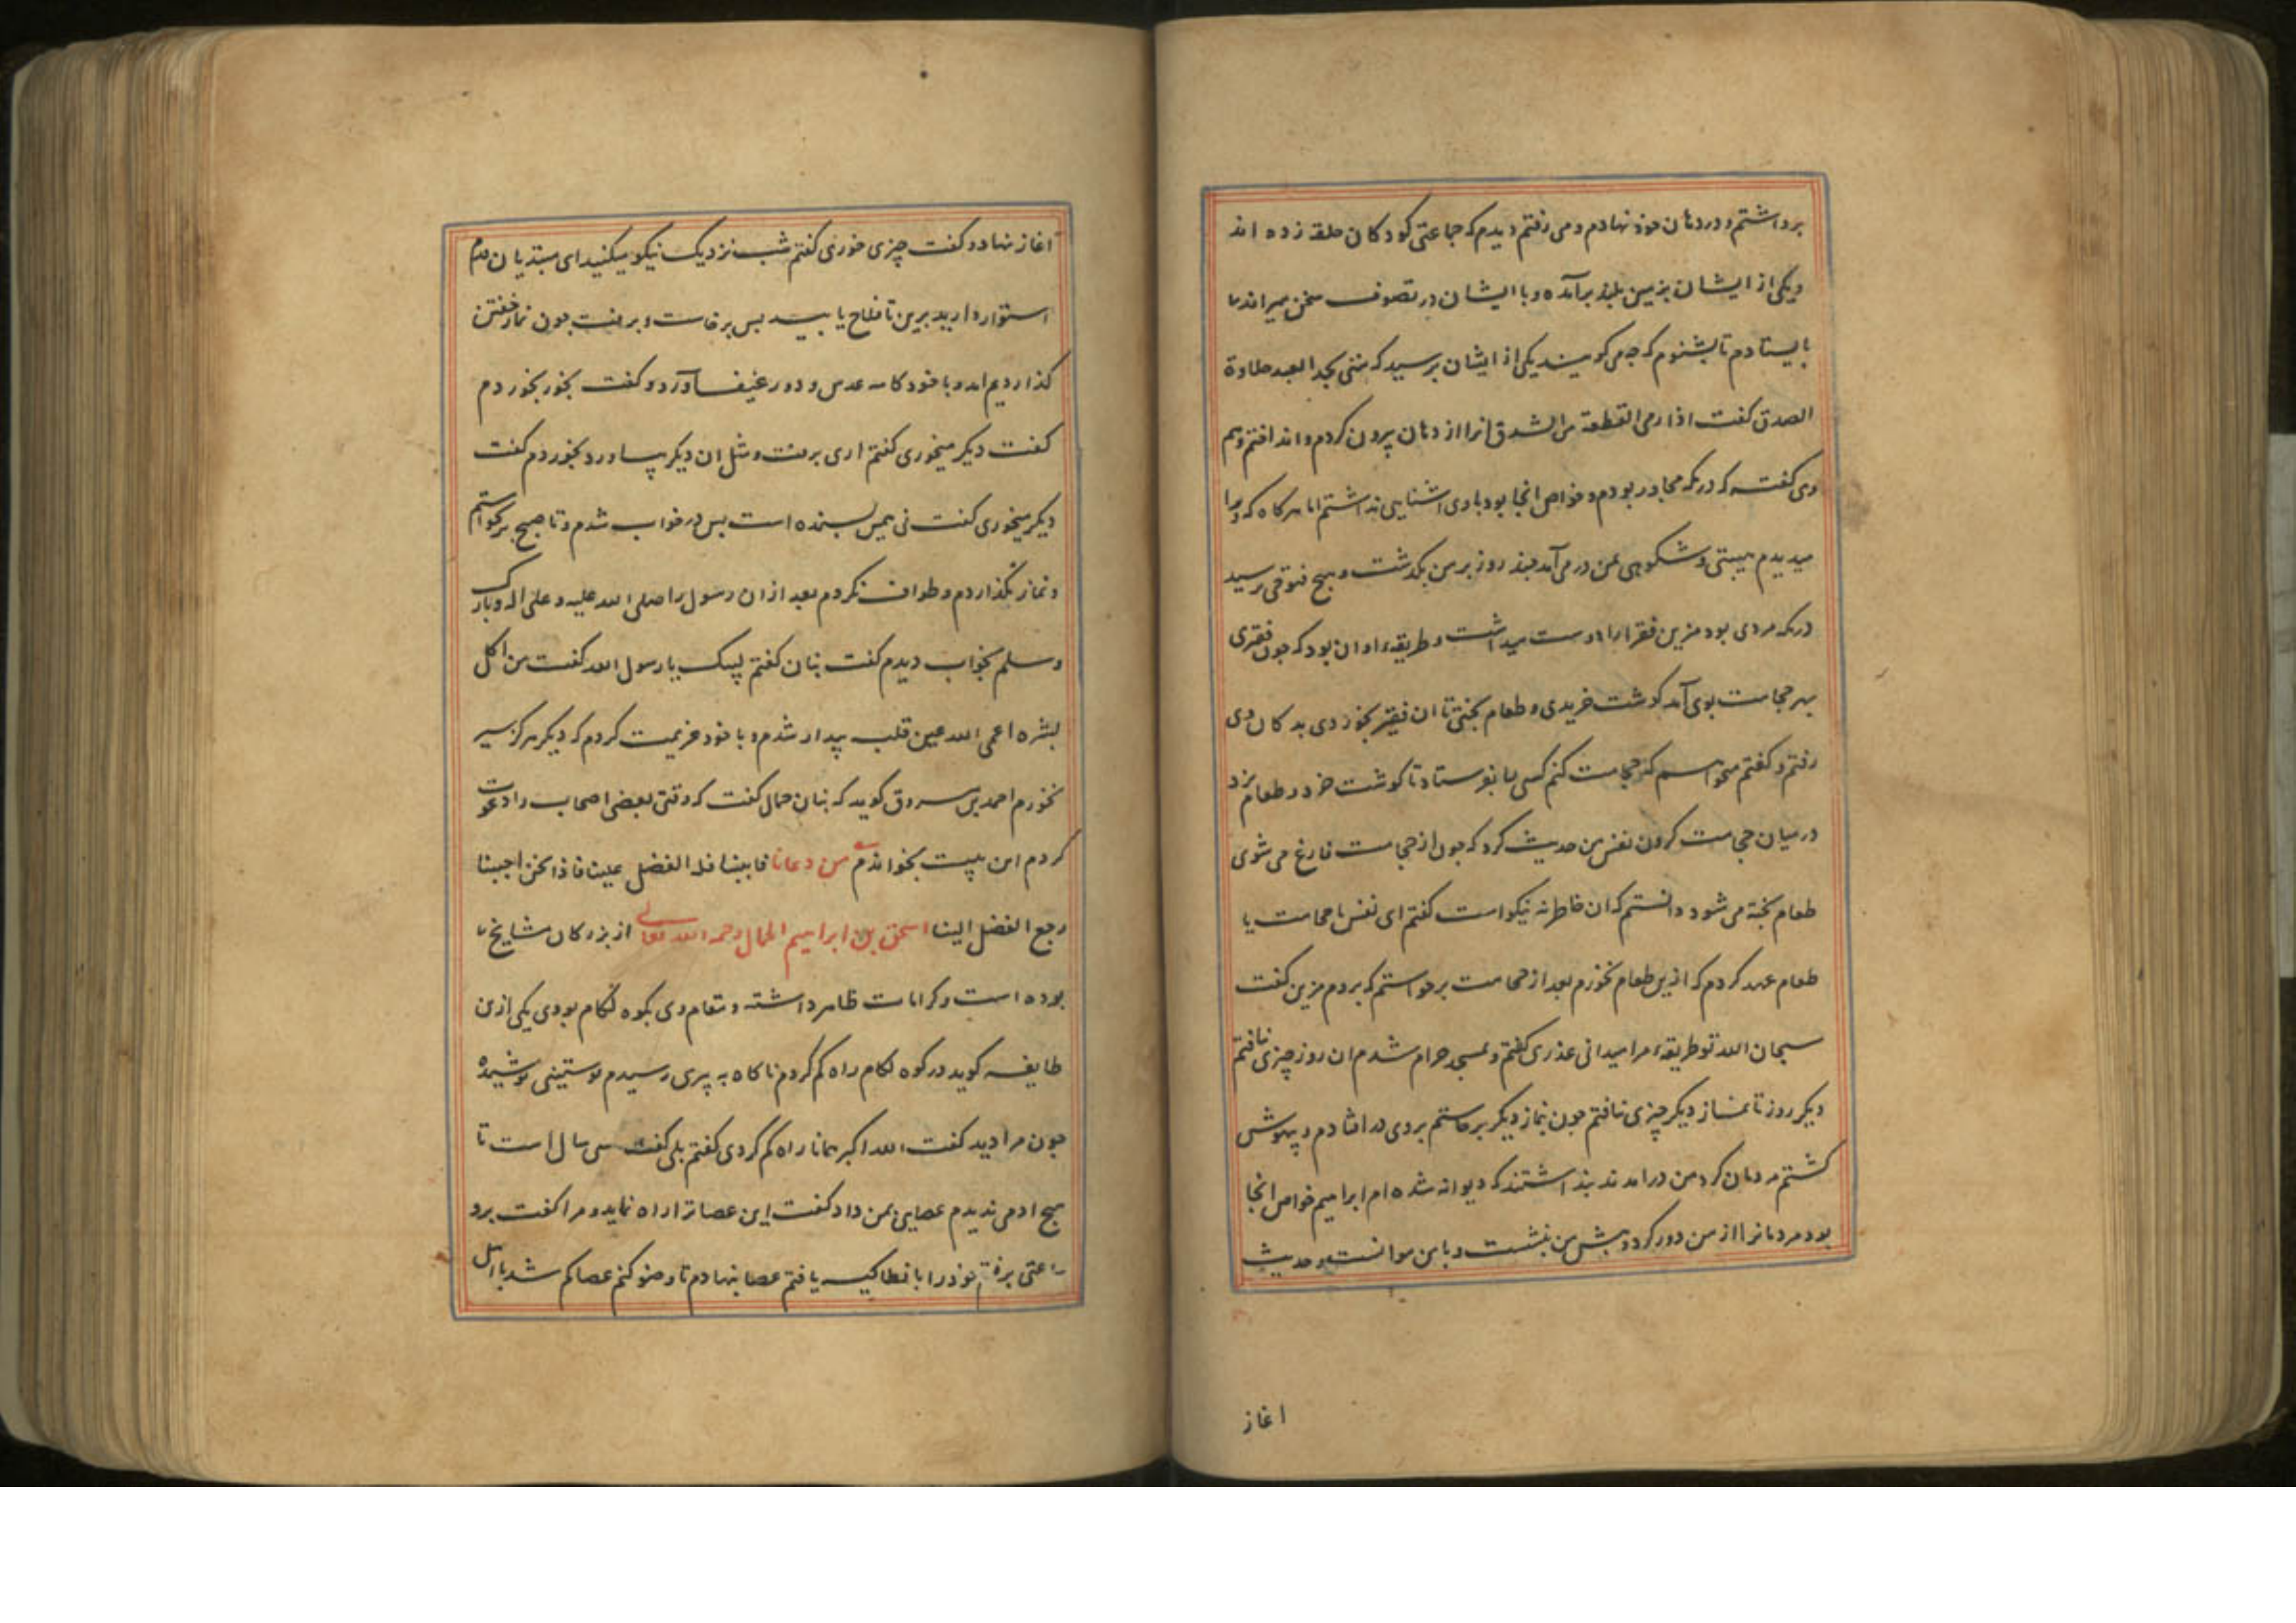 برداشتم و در دهان خود نهادم و می رفتم دیدم که جماعتی کودکان حلقه زده اند
و یکی از ایشان بزمین بلند برآمده و با ایشان در تصوف سخن میراند ما
بایستادم تا بشنوم که چه می کویند یکی از ایشان پرسید که متی یجد العبد حلاوة
الصدق کفت اذا رمی القطعة من الشدق انرا از دهان بیرون کردم و انداختم و هم
وی کفته که در مکه مجاور بودم و خواص انجا بود با وی اشنایی نداشتم اما هرکاه که ویرا
میدیدم هیبتی و شکوهی بمن در می آمد چند روز بر من بکذشت و هیچ فتوحی نرسید
در مکه مردی بود مزین فقرا را دوست میداشت و طریقه او ان بود که چون فقیری
بهر حجامت بوی آمد کوشت خریدی و طعام پختی تا ان فقیر بخوردی بدکان وی
رفتم و کفتم میخواهم که حجامت کنم کسی را بفرستاد تا کوشت خرد و طعام پزد
در میان حجامت کردن نفس من حدیث کرد که چون از حجامت فارغ می شوی
طعام پخته می شود دانستم که ان خاطر نه نیکو است کفتم ای نفس با حجامت یا
طعام عهد کردم که ازین طعام نخورم بعد از حجامت برخواستم که بروم مزین کفت
سبحان الله تو طریقه مرا میدانی عذری کفتم و بمسجد حرام شدم ان روز چیزی نیافتم
دیکر روز تا نماز دیکر چیزی نیافتم چون بنماز دیکر برخاستم بروی در افتادم و بیهوش
کشتم مردمان کرد من درامدند پنداشتند که دیوانه شده ام ابراهیم خواص انجا
بود مردمانرا از من دور کرد و پیش من بنشست و با من موانست و حدیث
اغاز
اغاز نهاد و کفت چیزی خوری کفتم شب نزدیک نیکو میکنید ای مبتدیان قدم
استوار دارید برین تا فلاح یابید پس برخاست و برفت چون نماز خفتن
کذاردیم امد و با خود کاسه عدس و دو رغیف آورد و کفت بخور بخوردم
کفت دیکر میخوری کفتم اری برفت و مثل ان دیکر بیاورد بخوردم کفت
دیکر میخوری کفت نی همین بسنده است پس در خواب شدم و تا صبح برنخواستم
و نماز نکذاردم و طواف نکردم بعد ازان رسول را صلی الله علیه و علی اله و بارک
و سلم بخواب دیدم کفت بنان کفتم لبیک یا رسول الله کفت من اکل
بشره اعمی الله عین قلبه بیدار شدم و با خود عزیمت کردم که دیکر هرکز سیر
نخورم احمد بن مسروق کوید که بنان حمال کفت که وقتی بعضی اصحاب را دعوت
کردم این بیت بخواندم من دعانا فابینا فله الفضل علینا فاذا نحن اجبنا
رجع الفضل الینا اسحق بن ابراهیم الحمال رحمه الله تعالی از بزرکان مشایخ ما
بوده است و کرامات ظاهر داشته و مقام وی بکوه لکام بودی یکی ازین
طایفه کوید در کوه لکام راه کم کردم ناکاه به پیری رسیدم پوستینی پوشیده
چون مرا دید کفت الله اکبر همانا راه کم کردی کفتم بلی کفت سی سال است تا
هیچ ادمی ندیدم عصایی بمن داد کفت این عصا ترا راه نماید و مرا کفت برو
ساعتی برفتم خود را بانطاکیه یافتم عصا بنهادم تا وضو کنم عصا کم شد با اهل